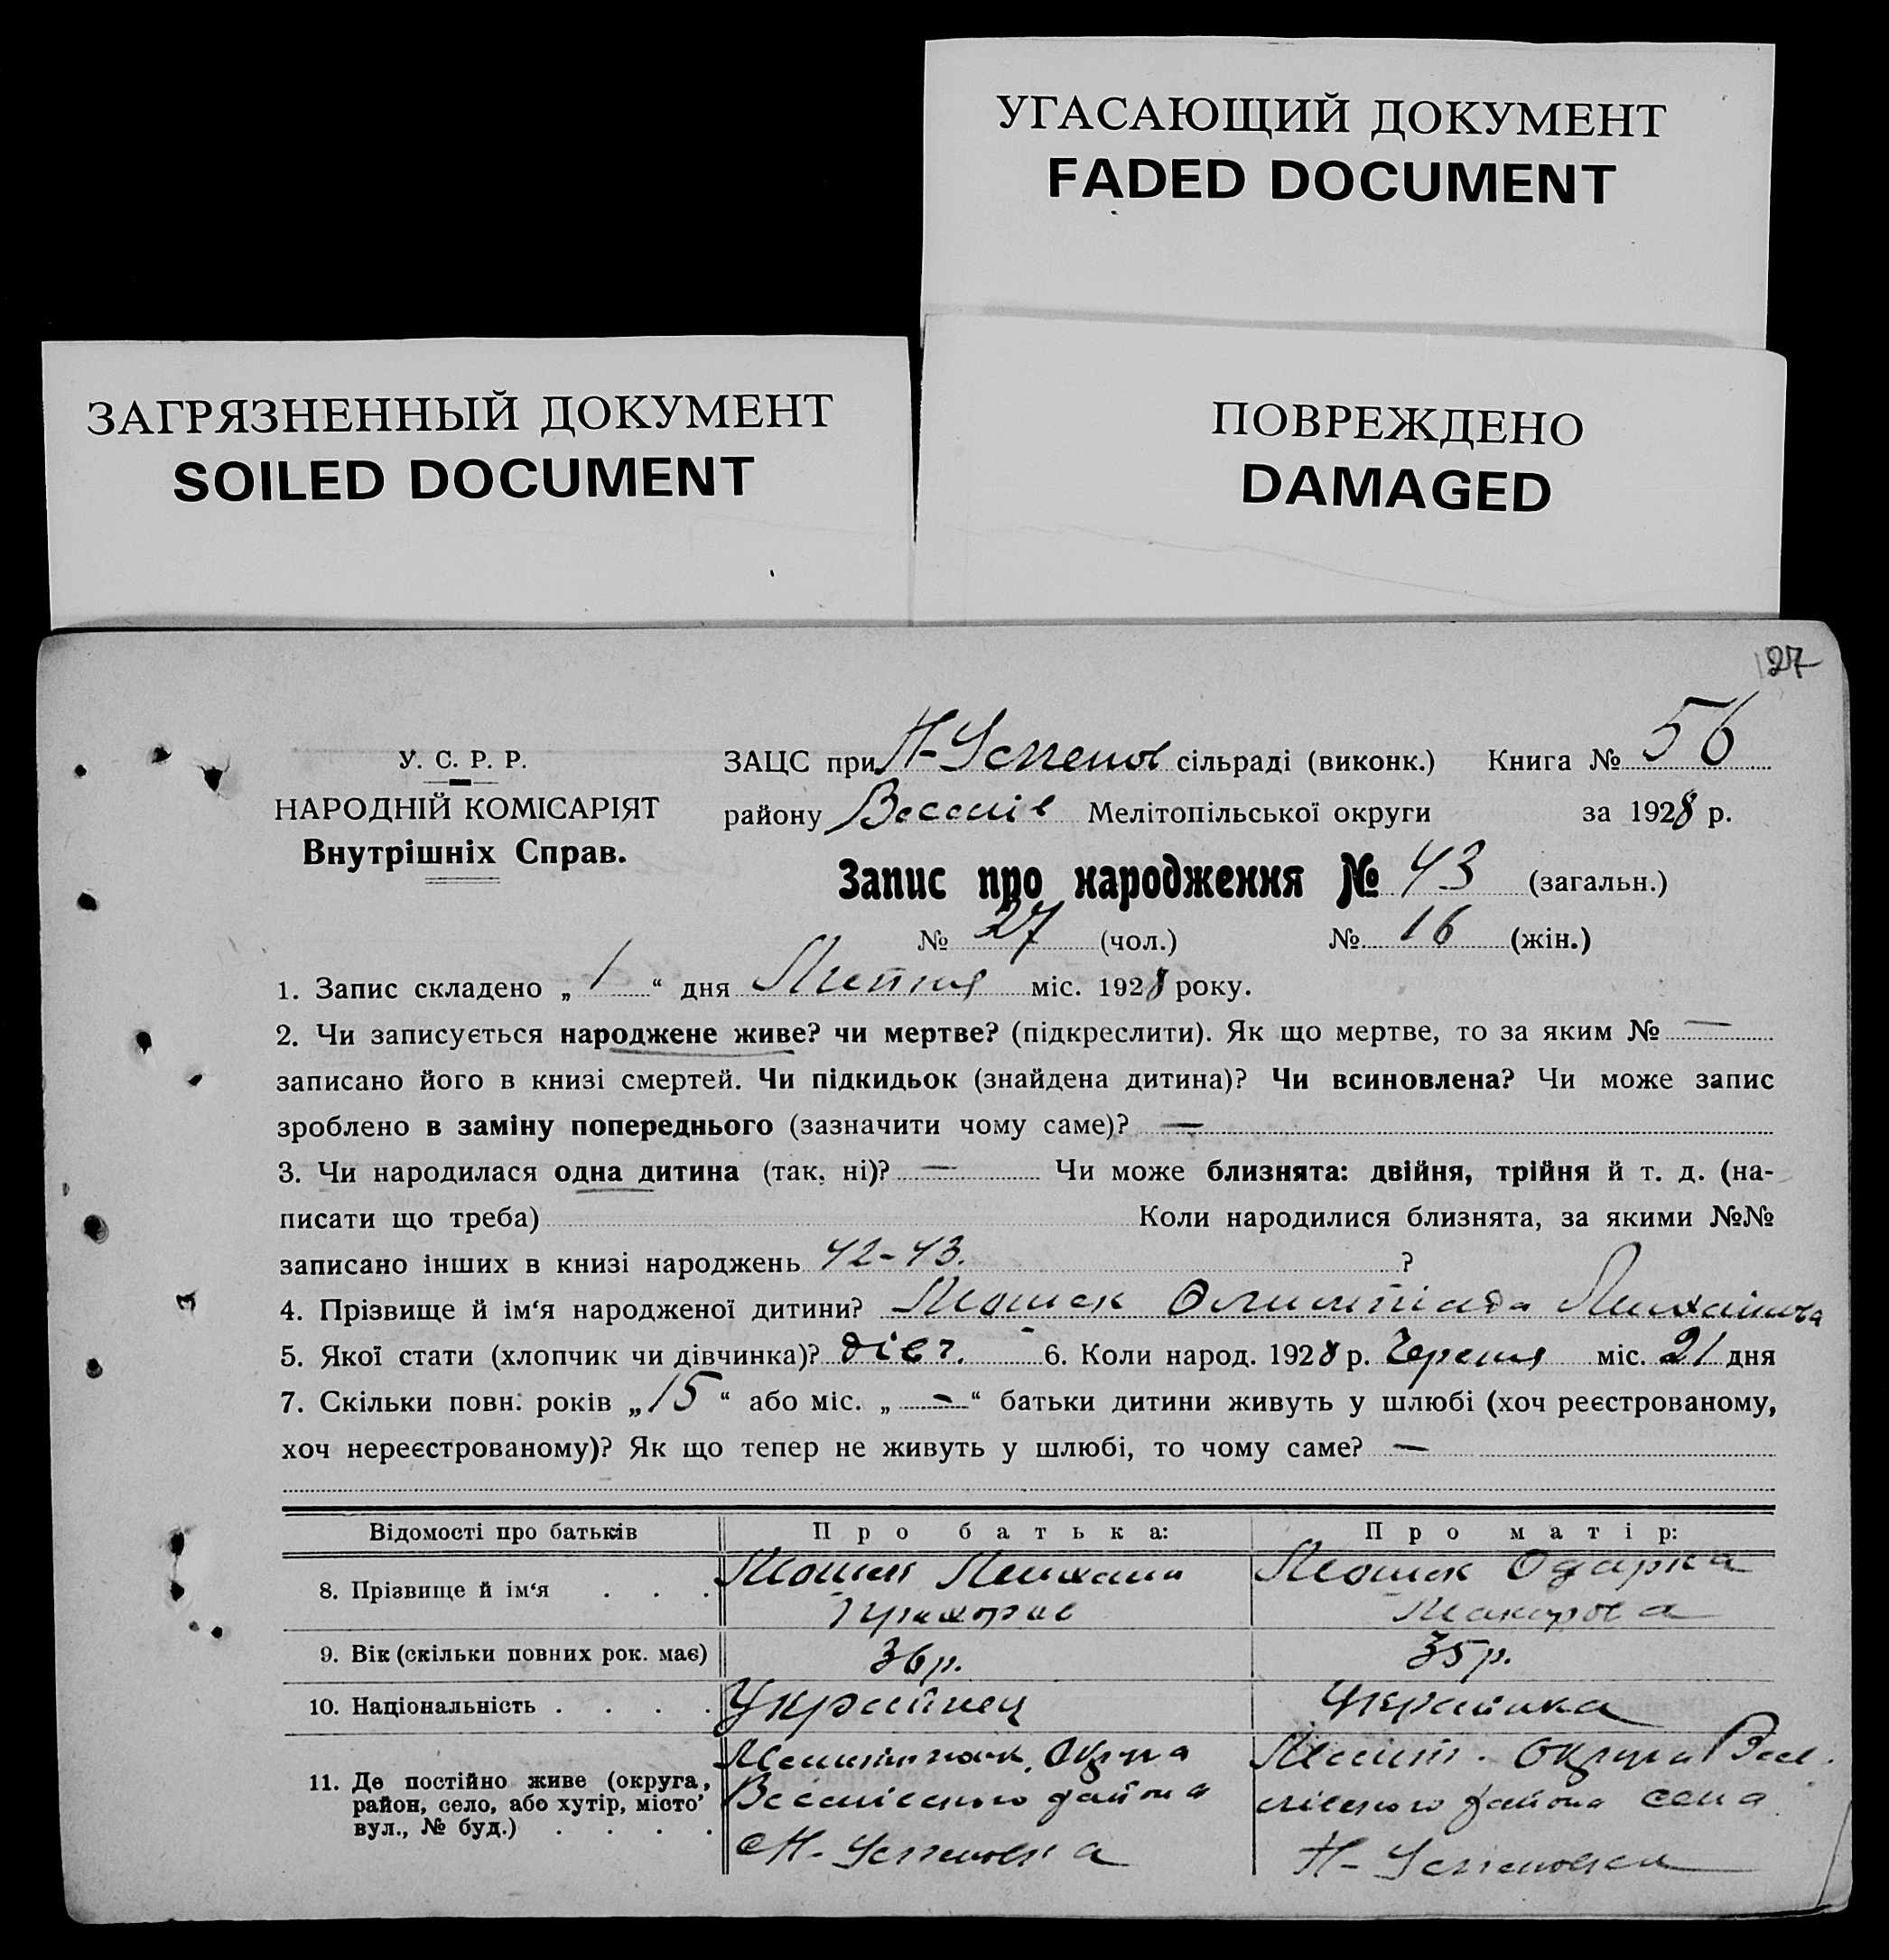 УГАСАЮЩИЙ ДОКУМЕНТ
FADED DOCUMENT
ЗАГРЯЗНЕННЫЙ ДОКУМЕНТ
SOILED DOCUMENT
ПОВРЕЖДЕНО
DAMAGED
27
У. С. Р. Р.
НАРОДНІЙ КОМІСАРІЯТ
Внутрішніх Справ.
ЗАЦС при Н-Успенов сільраді (виконк.) Книга № 56
району Веселів Мелітопільської округи за 1928 р.
Запис про народження № 43 (загальн.)
№ 27 (чол.) № 16 (жін.)
1. Запис складено „ 1 “ дня Липня міс. 1928 року.
2. Чи записується народжене живе? чи мертве? (підкреслити). Як що мертве, то за яким № —
записано його в книзі смертей. Чи підкидьок (знайдена дитина)? Чи всиновлена? Чи може запис
зроблено в заміну попереднього (зазначити чому саме)? —
3. Чи народилася одна дитина (так, ні)? — Чи може близнята: двійня, трійня й т. д. (на-
писати що треба) Коли народилися близнята, за якими №№
записано інших в книзі народжень 42-43. ?
4. Прізвище й ім‘я народженої дитини? Олимпіада Михайлова
5. Якої стати (хлопчик чи дівчинка)? дівч. 6. Коли народ. 1928 р. Червня міс. 21 дня
7. Скільки повн. років „ 15 “ або міс. „ — “ батьки дитини живуть у шлюбі (хоч реєстрованому,
хоч нереєстрованому)? Як що тепер не живуть у шлюбі, то чому саме? —
Відомості про батьків
Про батька:
Про матір:
8. Прізвище й ім‘я . . .
Михаил
Одарка
Макарова
9. Вік (скільки повних рок. має)
36 р.
35 р.
10. Національність . . . .
Украінец
Украінка
11. Де постійно живе (округа,
район, село, або хутір, місто,
вул., № буд.) . . . .
Округа
Веселівського района
с Н-Успеновка
Меліт. Округа Весе.
лівського района села
Н-Успеновка